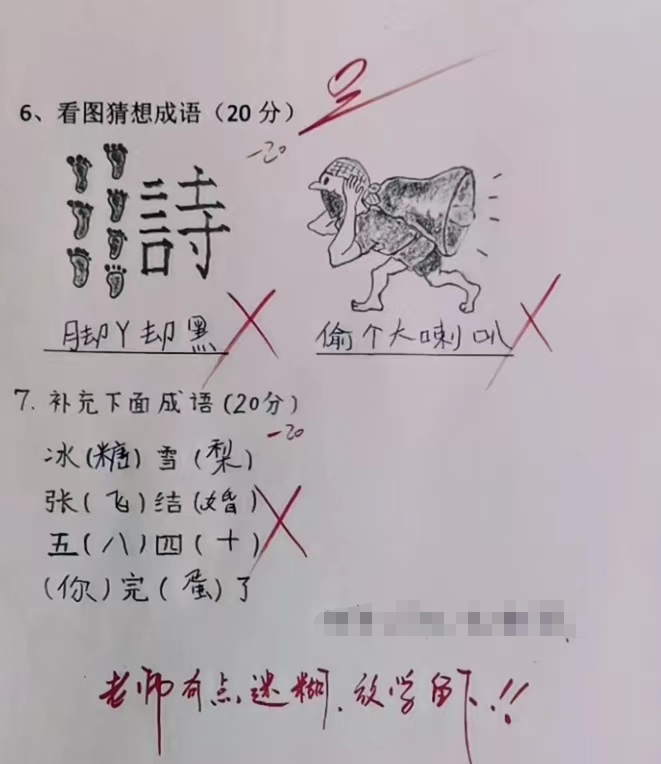 6、看图猜想成语（20 分）
-20
詩
脚丫却黑
偷个大喇叭
7. 补充下面成语(20分)
-20
冰(糖)雪(梨)
张(飞)结(婚)
五(八)四(十)
(你)完(蛋)了
老师有点迷糊、放学留下!!